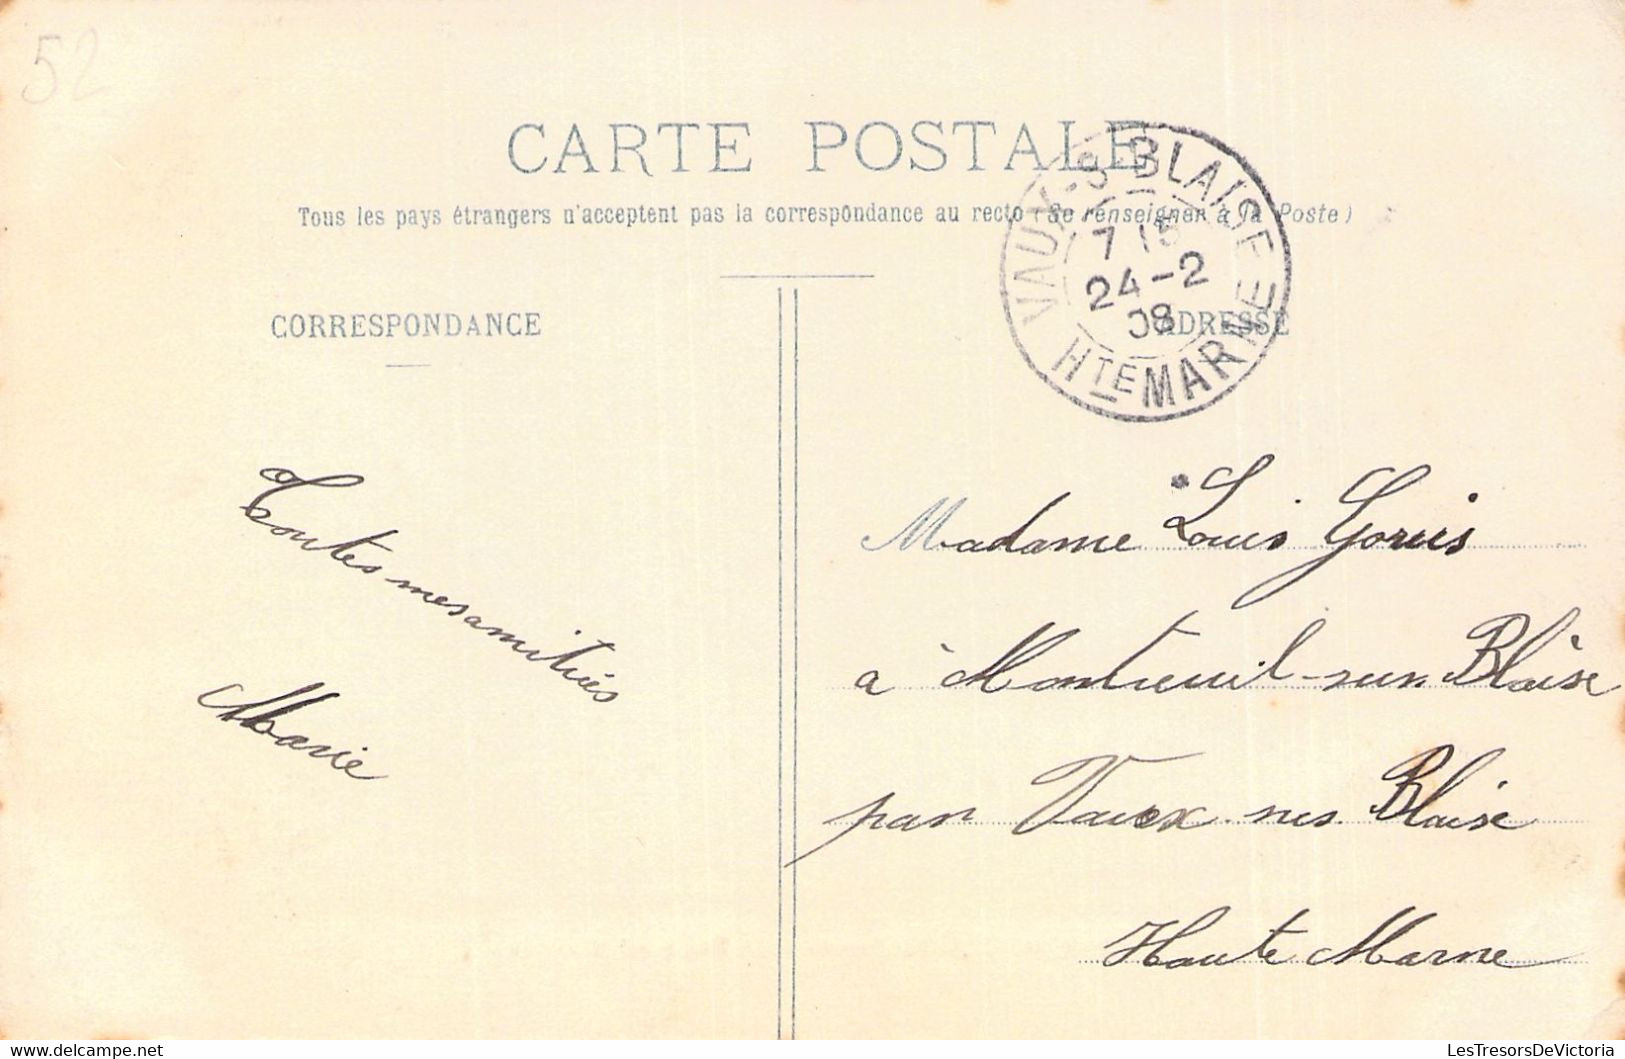 52
CARTE POSTALE
Tous les pays étrangers n'acceptent pas la correspondance au recto (Se renseigner à la Poste)
VAUX-S-BLAISE
7 15
24-2
08
HTE MARNE
CORRESPONDANCE
ADRESSE
Toutes mes amitiés
Marie
Madame Louis
à Montreuil-sur-Blaise
par Vaux sur Blaise
Haute Marne
LesTresorsDeVictoria